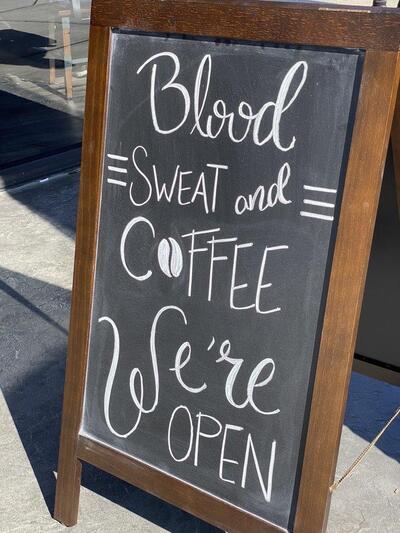 Blood
SWEAT and
COFFEE
We're
OPEN